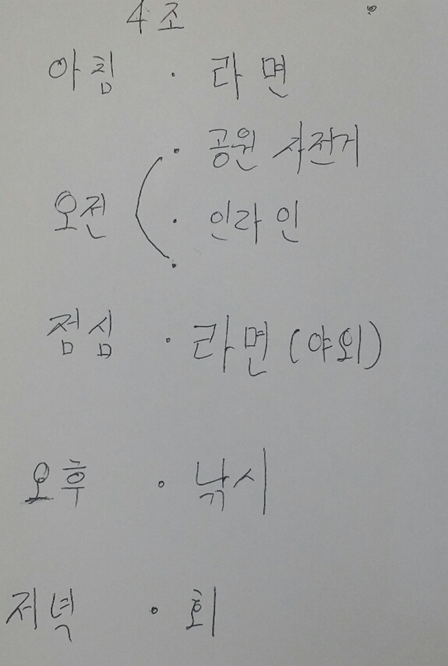 4조
아침 · 라면
· 공원 자전거
오전 · 인라인
·
점심 · 라면 (야외)
오후 · 낚시
저녁 · 회